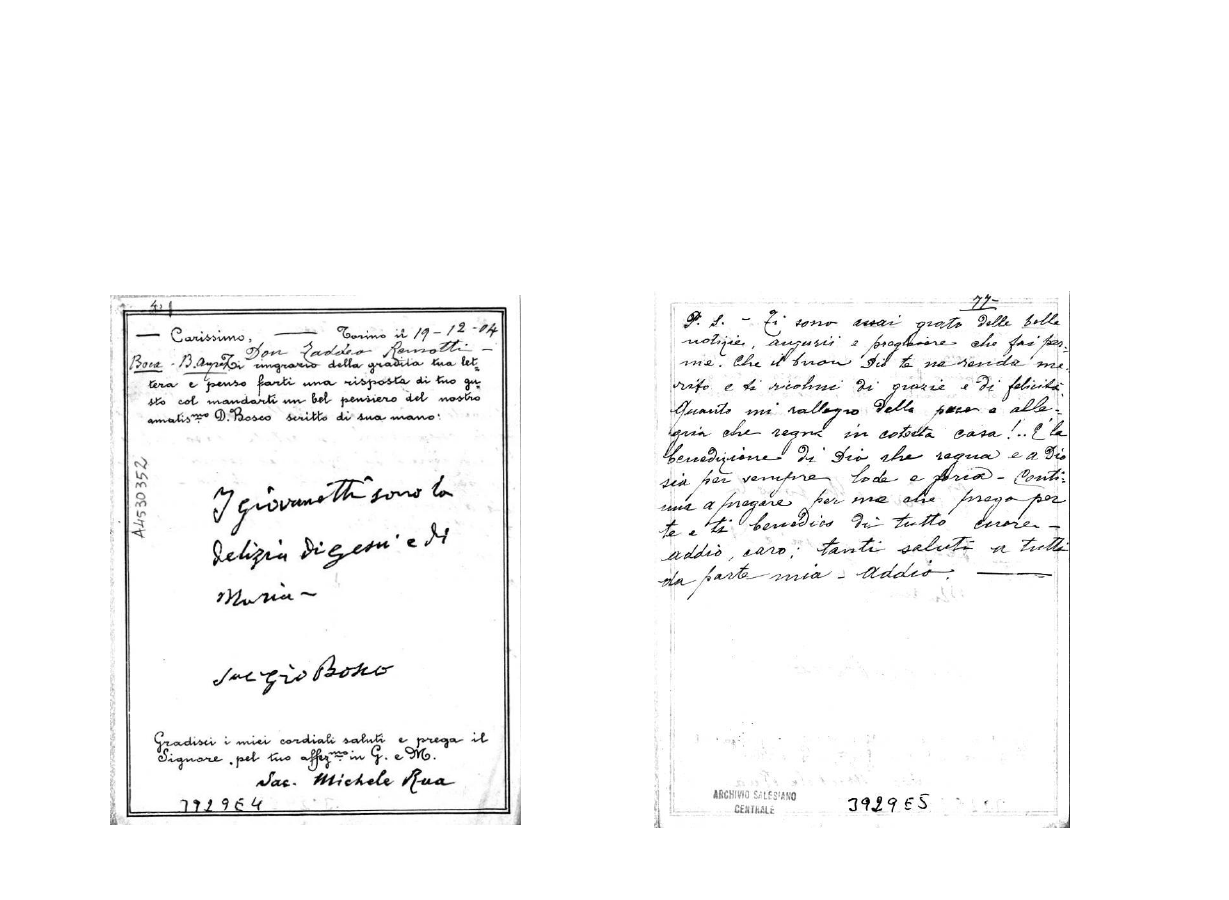 — Carissimo, — Torino il 19-12-04
Don Taddeo Remotti -
Boca - B. Ayres Ti ringrazio della gradita tua let-
tera e penso farti una risposta di tuo gu-
sto col mandarti un bel pensiero del nostro
amatisᵐᵒ D. Bosco scritto di sua mano:
A4530352
I giovanetti sono la
delizia di Gesù e di
Maria -
Sac Gio Bosco
Gradisci i miei cordiali saluti e prega il
Signore pel tuo affezᵐᵒ in G. e M.
Sac. Michele Rua
3929E4
77-
P. S. - Ti sono assai grato delle belle
notizie, augurii e preghiere che fai per
me. Che il buon Dio te ne renda me-
rito e ti ricolmi di grazie e di felicità.
Quanto mi rallegro della pace e alle-
gria che regna in cotesta casa!.. È la
benedizione di Dio che regna e a Dio
sia per sempre lode e gloria - Conti-
nua a pregare per me che prego per
te e ti benedico di tutto cuore -
addio, caro; tanti saluti a tutti
da parte mia - addio. —
ARCHIVIO SALESIANO
CENTRALE
3929E5